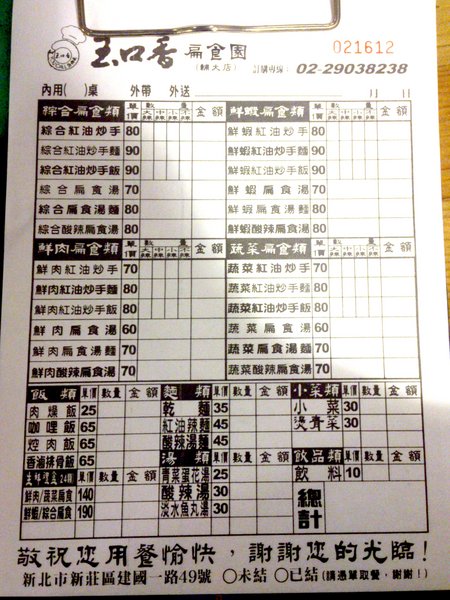 玉口香 扁食園
(輔大店)
021612
訂購專線: 02-29038238
內用( )桌 外帶 外送 月 日
綜合扁食類 單價 數量 大辣 中辣 小辣 不辣 金額
綜合紅油炒手 80
綜合紅油炒手麵 90
綜合紅油炒手飯 90
綜合扁食湯 70
綜合扁食湯麵 80
綜合酸辣扁食湯 80
鮮蝦扁食類 單價 數量 大辣 中辣 小辣 不辣 金額
鮮蝦紅油炒手 80
鮮蝦紅油炒手麵 90
鮮蝦紅油炒手飯 90
鮮蝦扁食湯 70
鮮蝦扁食湯麵 80
鮮蝦酸辣扁食湯 80
鮮肉扁食類 單價 數量 大辣 中辣 小辣 不辣 金額
鮮肉紅油炒手 70
鮮肉紅油炒手麵 80
鮮肉紅油炒手飯 80
鮮肉扁食湯 60
鮮肉扁食湯麵 70
鮮肉酸辣扁食湯 70
蔬菜扁食類 單價 數量 大辣 中辣 小辣 不辣 金額
蔬菜紅油炒手 70
蔬菜紅油炒手麵 80
蔬菜紅油炒手飯 80
蔬菜扁食湯 60
蔬菜扁食湯麵 70
蔬菜酸辣扁食湯 70
飯類 單價 數量 金額
肉燥飯 25
咖哩飯 65
焢肉飯 65
香滷排骨飯 65
單價 數量 金額
鮮肉/蔬菜扁食 140
鮮蝦/綜合扁食 190
麵類 單價 數量 金額
乾麵 35
紅油辣麵 45
酸辣湯麵 45
湯類 單價 數量 金額
青菜蛋花湯 25
酸辣湯 30
淡水魚丸湯 30
小菜類 單價 數量 金額
小菜 30
燙青菜 30
飲品類 單價 數量 金額
飲料 10
總計
敬祝您用餐愉快，謝謝您的光臨!
新北市新莊區建國一路49號 ○未結 ○已結 (請憑單取餐，謝謝!)